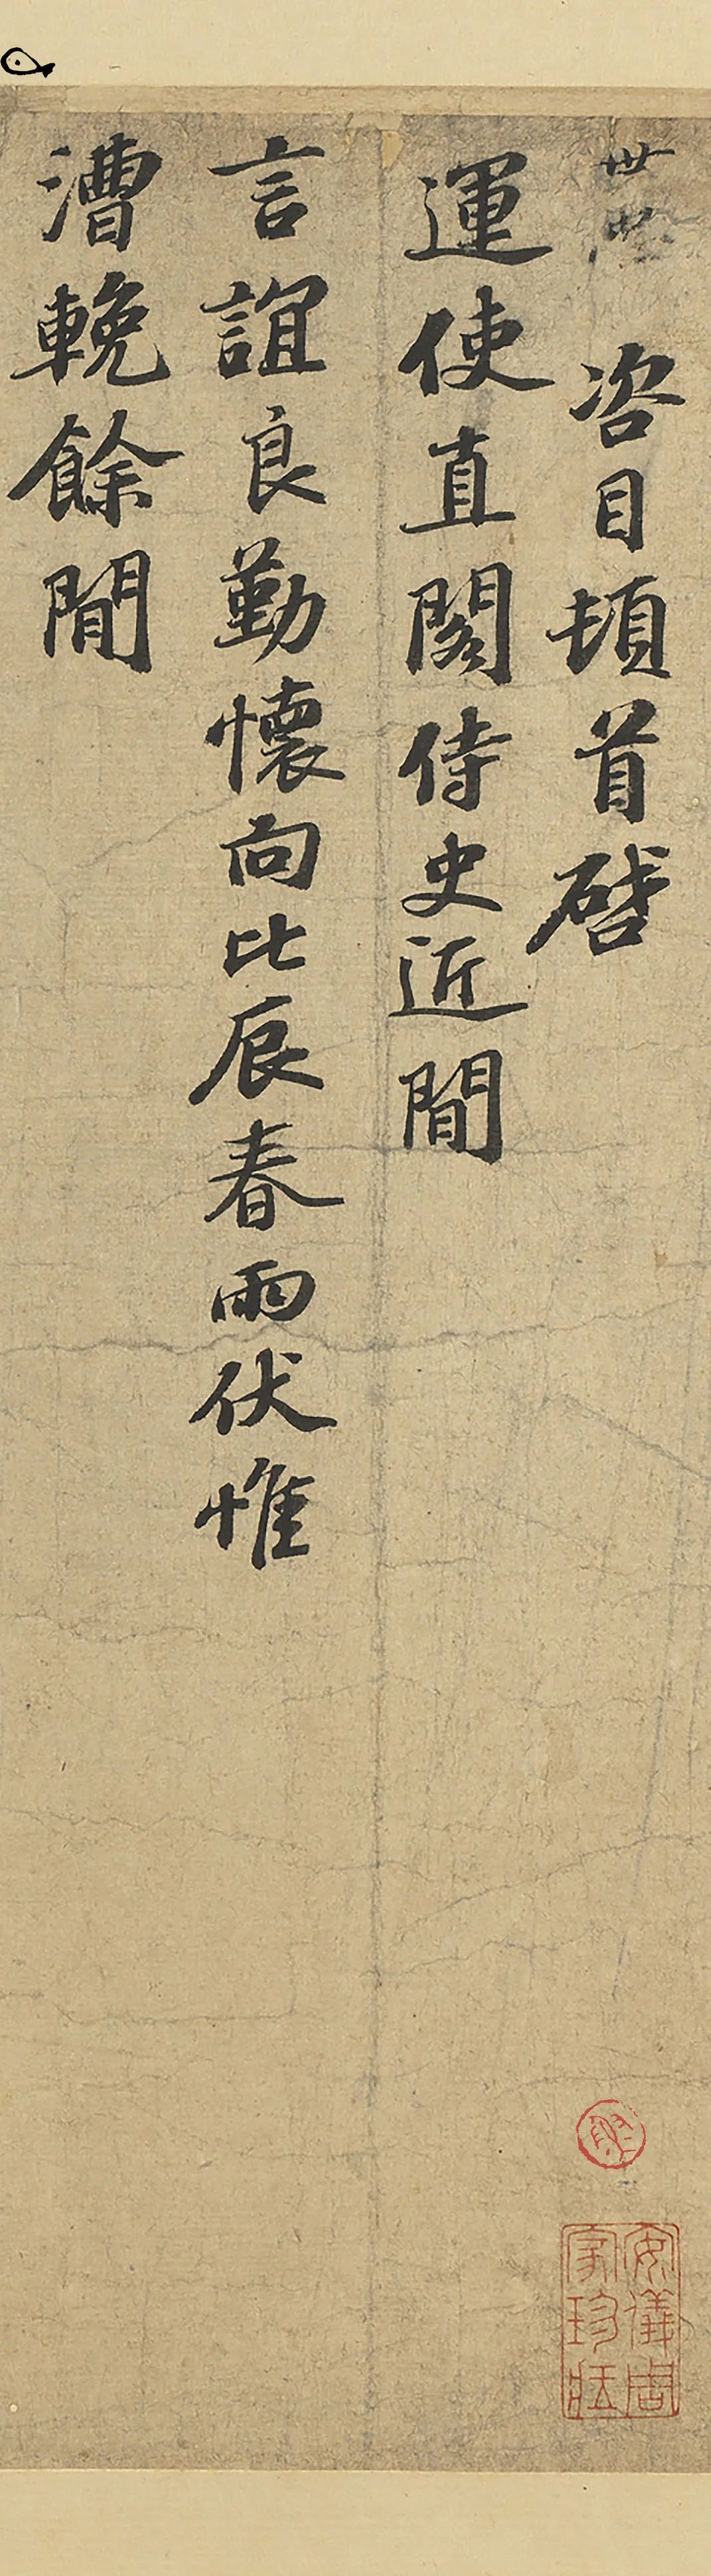 咨目頓首啓
運使直閣侍史近閒
言誼良勤懷向比辰春雨伏惟
漕輓餘閒
安儀周家珍藏